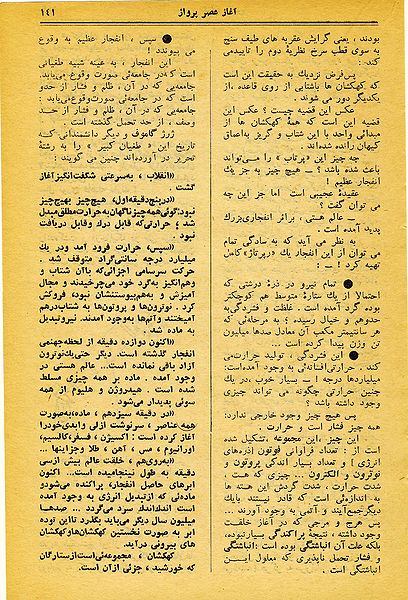 آغاز عصر پرواز
۱۴۱
بودند ، یعنی گرایش عقربه های طیف سنج
به سوی قطب سرخ نظریهٔ دوم را تاییدمی
کند :
پس‌فرض نزدیک به حقیقت این است
که کهکشان ها باشتابی از روی قاعده ، از
یکدیگر دور می شوند .
عکس این قضیه چیست ؟ عکس این
قضیه این است که همهٔ کهکشان ها از
مبدائی واحد با این شتاب و گریز به‌اعماق
کیهان رانده شده‌اند .
چه چیز این «پرتاب» را می‌تواند
باعث شده باشد ؟ ــ هیچ چیز به جز یک
انفجار عظیم !
عقیدهٔ عجیبی است اما جز این چه
می توان گفت ؟
ــ عالم هستی ، براثر انفجاری‌بزرگ
پدید آمده است .
به نظر می آید که به سادگی تمام
می توان از این انفجار یک «رپرتاژ» کامل
تهیه کرد ! ــ :
● تمام نیرو در ذرهٔ درشتی که
احتمالا از یک ستارهٔ متوسط هم کوچکتر
بوده گرد آمده است . غلظت و فشردگی از
حدوهم و خیال رسیده ، به مرحله‌ئی که
هر سانتیمتر مکعب آن معادل صدها میلیون
تن وزن پیدا کرده است ...
● این فشردگی ، تولید حرارت‌می
کند . حرارتی‌افسانه‌ئی به وجود آمده‌است:
میلیاردها درجه ! ــ بسیار خوب ، در یک
چنین حرارتی چگونه می تواند چیزی
وجود داشته باشد ؟
پس هیچ چیز وجود خارجی ندارد:
همه چیز فشار است و حرارت .
این چیز ، این مجموعه ، تشکیل شده
است از : تعداد فراوانی فوتون (ذره‌های
انرژی ) و تعداد بسیار اندکی پروتون و
نوترون و الکترون ... چیزی که هست ،
شدت حرارت ، شدت گردش این هسته ها
به اندازه‌ئی است که قادر نیستند بایک
دیگر جمع‌آیند و اتمی به وجود آورند ...
پس هرج و مرجی که در آغاز خلقت
وجود داشته ، نتیجهٔ پراکندگی بسیارنبوده،
بلکه علت آن انباشتگی بوده است: انباشتگی
و فشار تحمل ناپذیری که معلول این
انباشتگی است .
● سپس ، انفجار عظیم به وقوع
می پیوندد !
این انفجار ، به عینه شبیه طغیانی
است که در جامعه‌ئی صورت وقوع می‌یابد.
جامعه‌یی که در آن ، ظلم و فشار از حدو
است که در جامعه‌ئی صورت‌وقوع‌می‌یابد :
جامعه‌یی که در آن ، ظلم و فشار از حد
وصف ، از حد تحمل گذشته است .
ژرژ گاموف و دیگر دانشمندانی که
تاریخ این «طغیان کبیر» را به رشتهٔ
تحریر در آورده‌اند چنین می گویند :
«انقلاب ، به‌سرعتی شگفت‌انگیز آغاز
گشت .
«در پنج‌دقیقه‌اول، هیچ‌چیز بهیچ‌چیز
نبود: گوئی‌همه چیز ناگهان به حرارت مطلق مبدل
شد ؛ حرارتی‌که قابل درک وقابل دریافت
نبود .
«سپس، حرارت فرود آمد ودر یک
میلیارد درجه سانتی‌گراد متوقف شد .
حرکت سرسامی اجزائی‌که باآن شتاب و
وهم‌انگیز به‌گرد خود می‌چرخیدند و مجال
آمیزش و به‌هم‌پیوستنشان نبود، فروکش
کرد . نوترون‌ها و پروتون‌ها به شتاب‌درهم
آمیختند واتم‌ها به‌وجود آمدند. نیروتبدیل
به ماده شد .
«اکنون دوازده دقیقه از لحظه‌جهنمی
انفجار گذشته است. دیگر حتی‌یک‌نوترون
آزاد باقی نمانده است... عالم هستی در
وجود آمده . ماده بر همه چیزی مسلط
شده است . هیدروژن و هلیوم از همه
سوئی پدیدار می‌شود .
«در دقیقه سیزدهم ، ماده،به‌صورت
همه‌عناصر ، سرنوشت ازلی وابدی‌خودرا
آغاز کرده است : اکسیژن ، فسفر،کالسیم،
اورانیوم ، مس ، آهن ، طلا وجزاینها ...
«به‌روی‌هم ، خلقت عالم بیش ازسی
دقیقه به طول نینجامیده است.. اکنون
ابرهای حاصل انفجار، پراکنده می‌شودو
ماده‌ئی که ازتبدیل انرژی به وجود آمده
است اندك‌اندك سرد می‌گردد ... صدهـا
میلیون سال دیگر می‌باید بگذرد تااین توده
ابر به صورت نخستین کهکشان‌هاوکهکشان
های بیرونی درآید.
کهکشان ، مجموعه‌ئی‌است‌ازستارگان
که خورشید ، جزئی ازآن است.